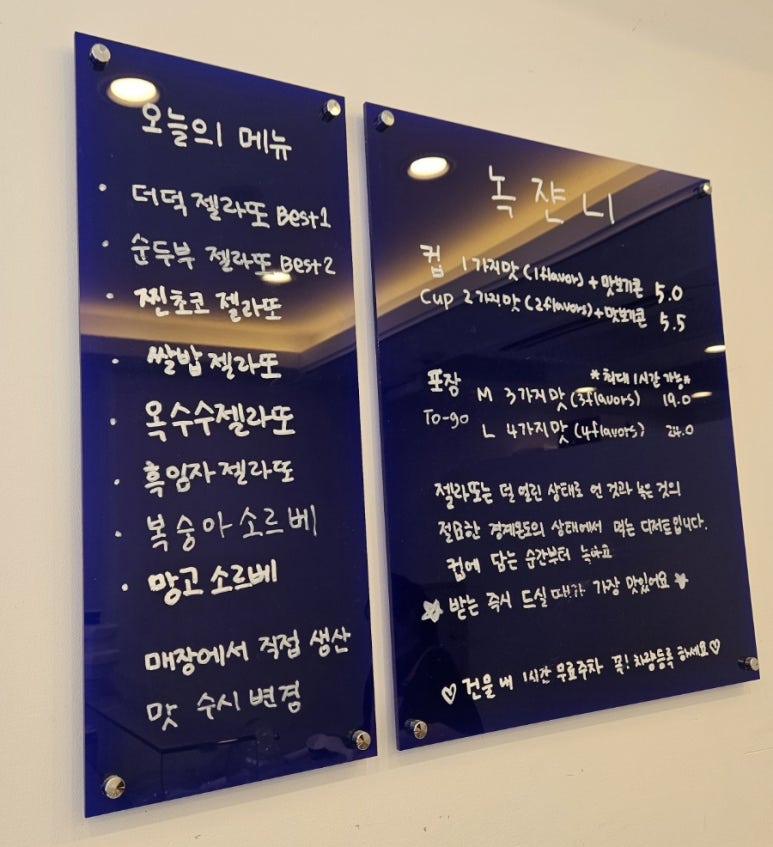 오늘의 메뉴
· 더덕 젤라또 Best1
· 순두부 젤라또 Best2
· 찐초코 젤라또
· 쌀밥 젤라또
· 옥수수젤라또
· 흑임자 젤라또
· 복숭아 소르베
· 망고 소르베
매장에서 직접 생산
맛 수시 변경
녹쟌니
컵 1가지맛 (1flavor) + 맛보기콘 5.0
Cup 2가지맛 (2flavors) + 맛보기콘 5.5
포장 *최대 1시간 가능*
M 3가지맛 (3flavors) 19.0
To-go
L 4가지맛 (4flavors) 24.0
젤라또는 덜 얼린 상태로 언 것과 녹은 것의
절묘한 경계온도의 상태에서 먹는 디저트입니다.
컵에 담는 순간부터 녹아요
☆ 받는 즉시 드실 때가 가장 맛있어요 ☆
♡ 건물 내 1시간 무료주차 꼭! 차량등록 하세요 ♡